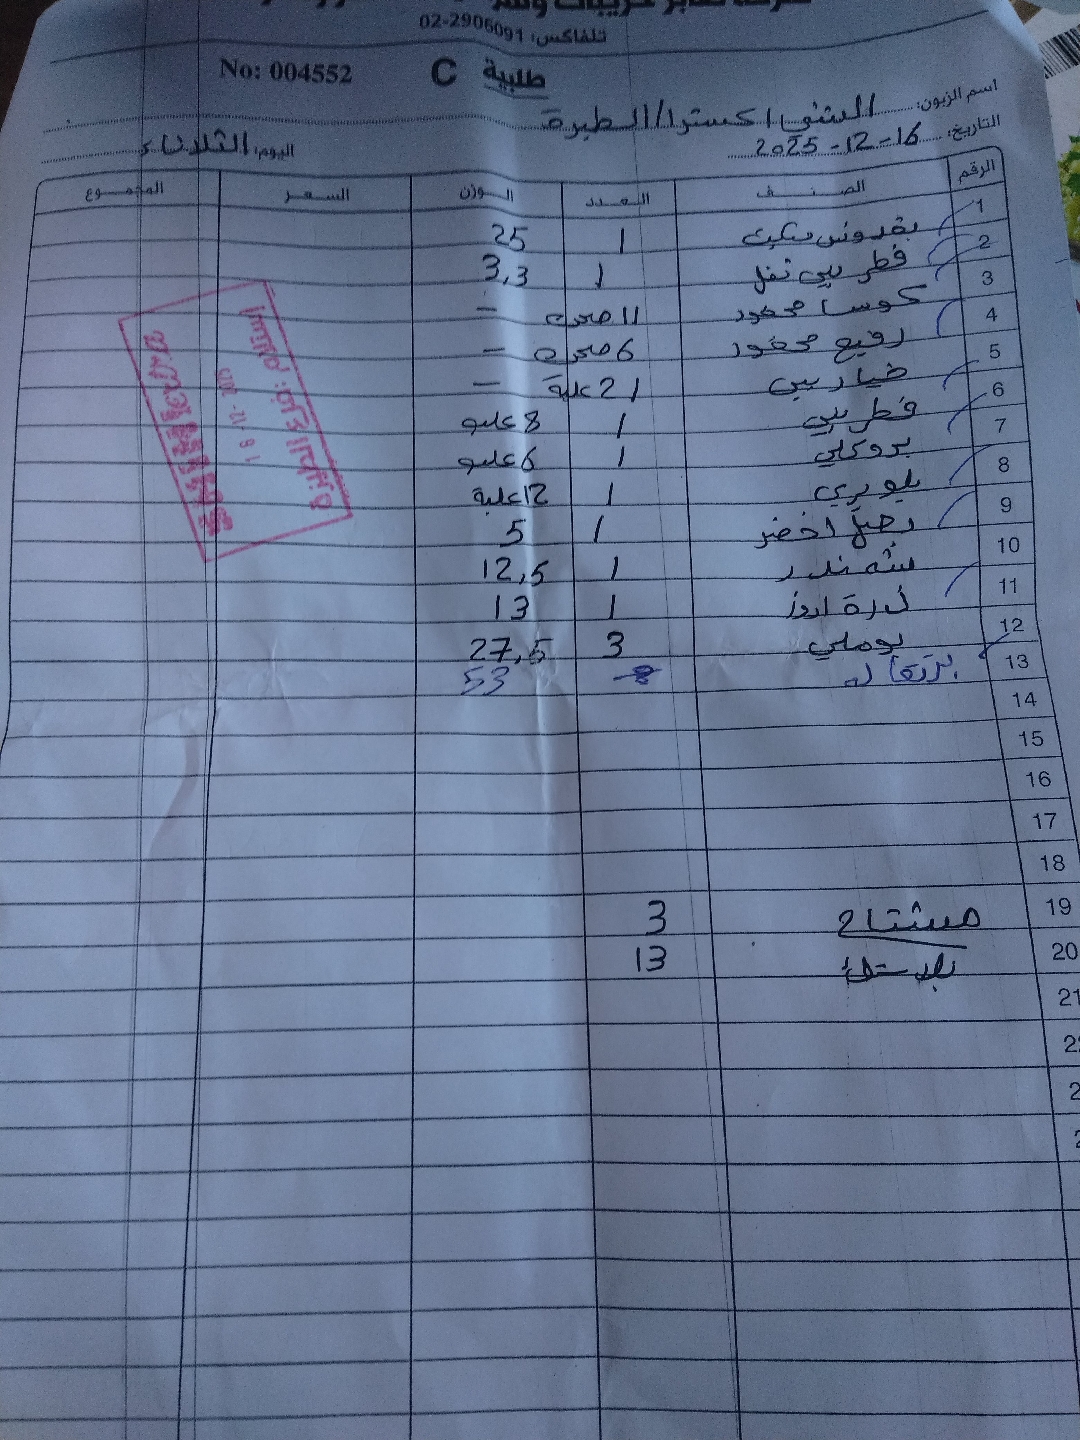 تلفاكس: 02-2906091
طلبية C No: 004552
اسم الزبون: الشني اكسترا/الطيرة
التاريخ: 16-12-2025 اليوم: الثلاثاء
الرقم الصنف العدد الوزن السعر المجموع
1 بقدونس 1 25
2 فطر بيبي 1 3,3
3 كوسا محفور 11 صحن -
4 رفيع محفور 6 صحن -
5 خيار بيبي 21 علبة -
6 فطر بيبي 1 8 علبه
7 بروكلي 1 6 علبه
8 1 12 علبة
9 اخضر 1 5
10 شمندر 1 12,5
11 ذرة 1 13
12 بوملي 3 27,5
13 برتقال 53
14
15
16
17
18
19 مشتاح 3
20 بلاستيك 13
21